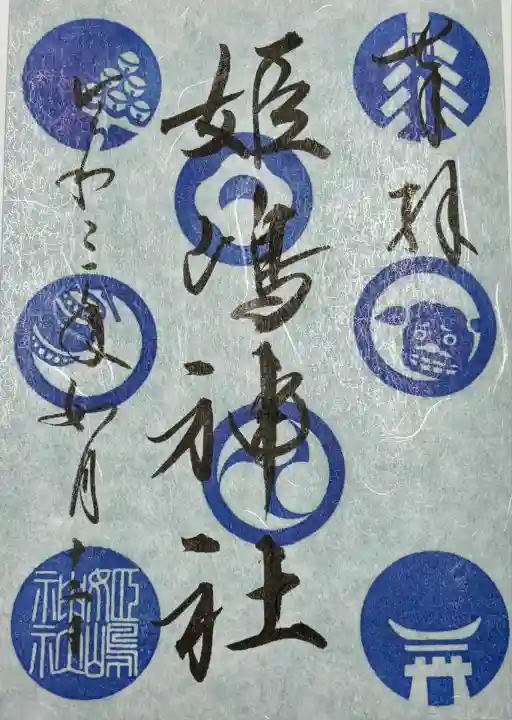 奉拝
姫嶋神社
令和三年如月
姫嶋神社